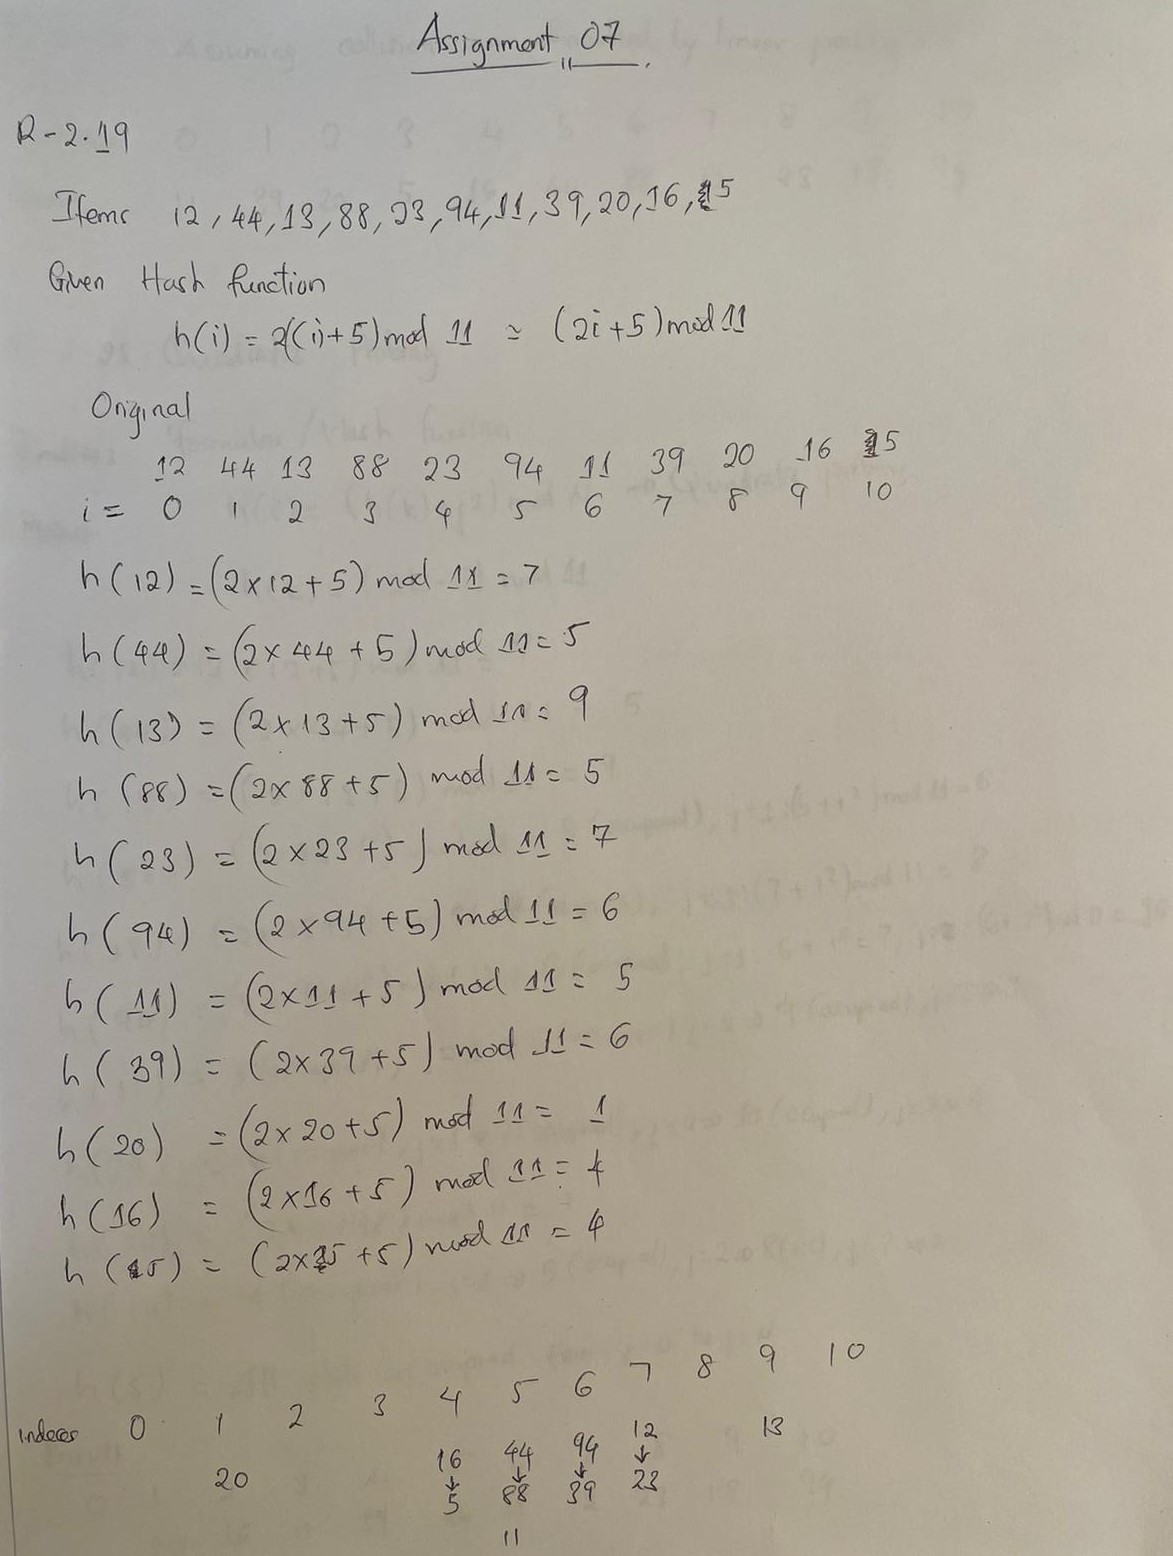 Assignment 07
R-2.19
Items 12, 44, 13, 88, 23, 94, 11, 39, 20, 16, 5
Given Hash function
h(i) = 2((i)+5) mod 11 ≃ (2i+5) mod 11
Original
12 44 13 88 23 94 11 39 20 16 5
i = 0 1 2 3 4 5 6 7 8 9 10
h(12) = (2×12+5) mod 11 = 7
h(44) = (2×44+5) mod 11 = 5
h(13) = (2×13+5) mod 11 = 9
h(88) = (2×88+5) mod 11 = 5
h(23) = (2×23+5) mod 11 = 7
h(94) = (2×94+5) mod 11 = 6
h(11) = (2×11+5) mod 11 = 5
h(39) = (2×39+5) mod 11 = 6
h(20) = (2×20+5) mod 11 = 1
h(16) = (2×16+5) mod 11 = 4
h(5) = (2×5+5) mod 11 = 4
Indexes 0 1 2 3 4 5 6 7 8 9 10
20 16 44 94 12 13
↓ ↓ ↓ ↓
5 88 39 23
11